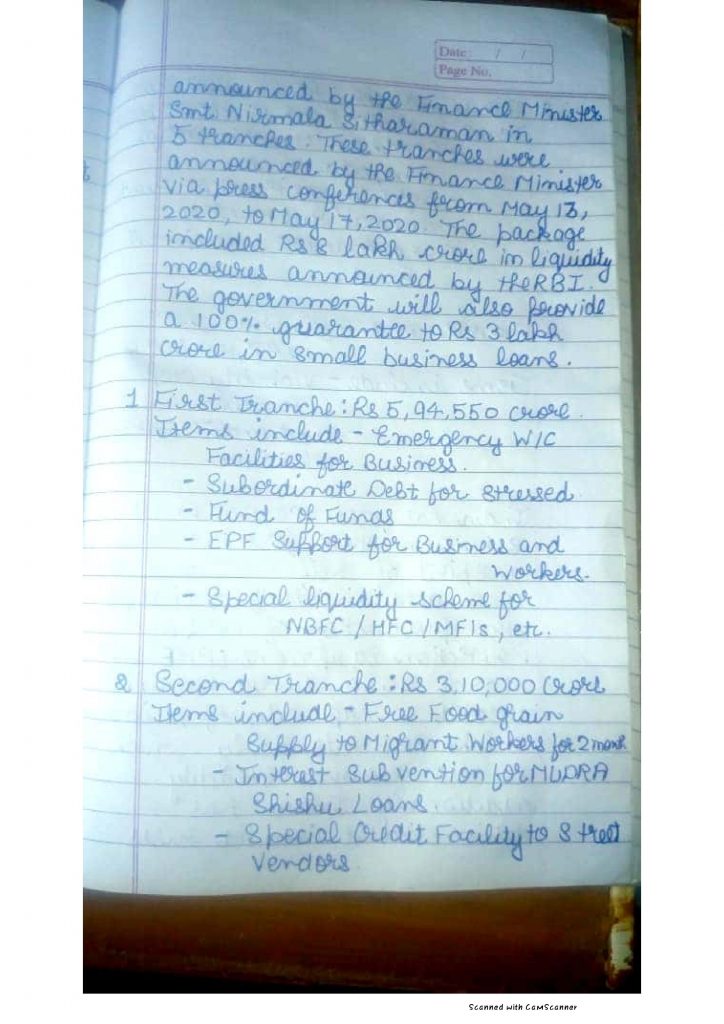 Date: / /
Page No.
announced by the Finance Minister
Smt. Nirmala Sitharaman in
5 tranches. These tranches were
announced by the Finance Minister
via press conferences from May 13,
2020, to May 17, 2020. The package
included Rs 8 lakh crore in liquidity
measures announced by the RBI.
The government will also provide
a 100% guarantee to Rs 3 lakh
crore in small business loans.
1 First Tranche: Rs 5,94,550 crore.
Items include - Emergency W/C
Facilities for Business.
- Subordinate Debt for Stressed
- Fund of Funds
- EPF Support for Business and
Workers.
- Special liquidity scheme for
NBFC / HFC / MFIs, etc.
2 Second Tranche: Rs 3,10,000 Crore
Items include - Free Food grain
Supply to Migrant Workers for 2 month
- Interest Subvention for MUDRA
Shishu Loans
- Special Credit Facility to Street
Vendors.
Scanned with CamScanner